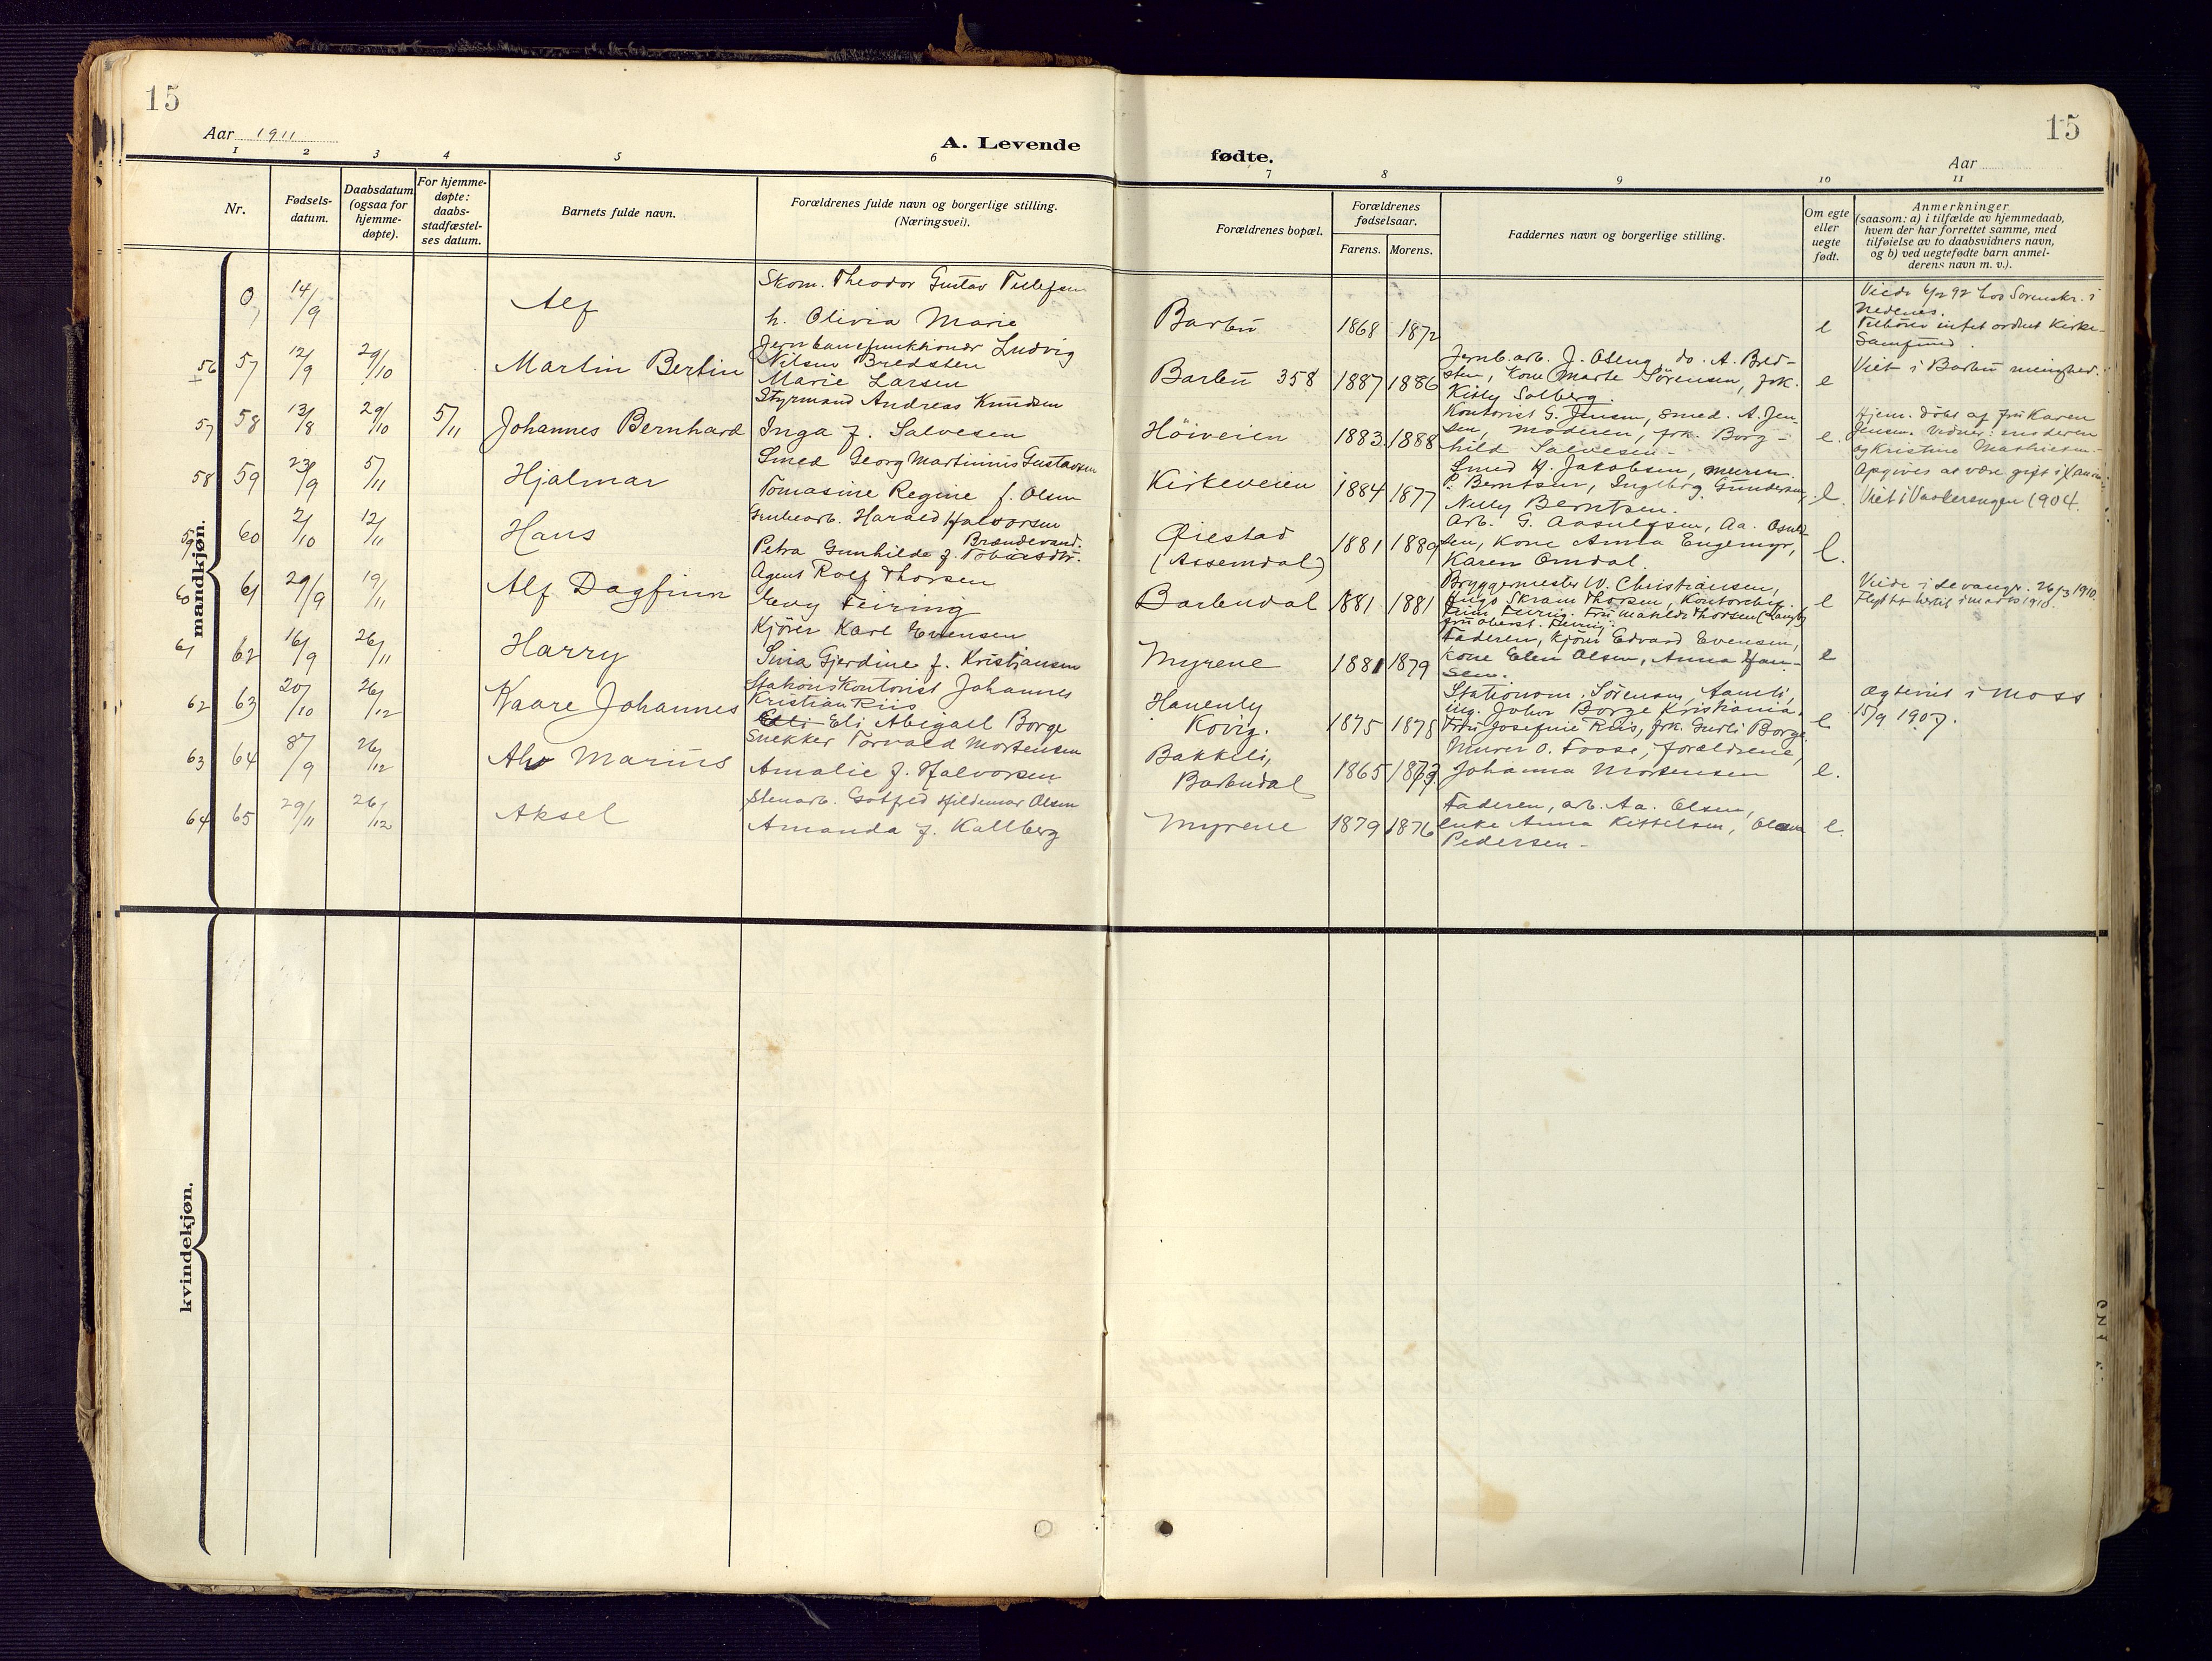 15
15
Aar 1911
A. Levende
fødte.
Aar
1 2 3 4 5 6 7 8 9 10 11
Nr.
Fødsels-
datum.
Daabsdatum
(ogsaa for
hjemme-
døpte).
For hjemme-
døpte:
daabs-
stadfæstel-
ses datum.
Barnets fulde navn.
Forældrenes fulde navn og borgerlige stilling.
(Næringsvei).
Forældrenes bopæl.
Forældrenes
fødselsaar.
Farens. Morens.
Faddernes navn og borgerlige stilling.
Om egte
eller
uegte
født.
Anmerkninger
(saasom: a) i tilfælde av hjemmedaab,
hvem der har forrettet samme, med
tilføielse av to daabsvidners navn,
og b) ved uegtefødte barn anmel-
derens navn m. v.).
mandkjøn.
0, 14/9 Alf
Skom. Theodor Gustav Tellefsen
h. Olivia Marie
Barbu 1868 1872 e
Viede 6/2 92 hos Sorenskr. i
Nedenes.
Tilhører intet ordnet Kirke-
Samfund.
56 57 12/9 29/10 Martin Bertin
Jernbanefunktionær Ludvig
Nilsen Bredsten
Marie Larsen
Barbu 358 1887 1886
Jernb.arb. J. Oseng, do. A. Bred-
sten, Kone Marte Sørensen, frk.
Kitty Solberg.
e
Viet i Barbu menighed.
57 58 13/8 29/10 5/11 Johannes Bernhard
Styrmand Andreas Knudsen
Inga f. Salvesen
Höiveien 1883 1888
Kontorist G. Jensen, smed. A. Jen-
sen, moderen, frk. Borg-
hild Salvesen.
e.
Hjem. döbt af fru Karen
Jensen. Vidner: moderen
og Kristine Mathiesen.
58 59 23/9 5/11 Hjalmar
Smed Georg Martinius Gustavsen
Tomasine Regine f. Olsen
Kirkeveien 1884 1877
Smed H. Jakobsen, murer
P. Berntsen, Ingeborg Gundersen,
Nelly Berntsen.
e.
Opgives at være gift i
Viet i Vaalerengen 1904.
59 60 2/10 12/11 Hans
Grubearb. Harald Halvorsen
Brændevand.
Petra Gunhilde f. Tobiasdtr.
Øiestad
(Assemdal)
1881 1889
Arb. G. Aasulfsen, Aa. Osulf-
sen, Kone Anna Engemyr,
Karen Omdal.
e.
60 61 29/9 19/11 Alf Dagfinn
Agent Rolf Thorsen
Lucy Feiring
Barbudal 1881 1881
Bryggermester W. Christiansen,
Hugo Skram Thorsen,
Feiring. Fru Mathilde Thorsen
fru Feiring.
e
Viede i Levanger 26/3 1910.
Flyttet hertil i marts 1910.
61 62 16/9 26/11 Harry
Kjører Karl Evensen
Sina Gjerdine f. Kristiansen
Myrene 1881 1879
Faderen, kjører Edvard Evensen,
Kone Elen Olsen, Anna Han-
sen.
e
62 63 20/10 26/12 Kaare Johannes
Stationskontorist Johannes
Kristian Riis
Eli Abigael Borge
Havenly
Kovig.
1875 1878
Stationsm. Sørensen, Aamli,
ing. Johr Borge Kristiania.
Fru Josefine Riis, frk. Gurli Borge.
e
Ægteviet i Moss
15/9 1907.
63 64 8/9 26/12 Alv Marius
Snekker Torvald Mortensen
Amalie f. Halvorsen
Bakkeli,
Barbudal
1865 1873
Murer O. Foose, forældrene,
Johanna Mortensen
e.
64 65 29/11 26/12 Aksel
Stenarb. Gotfred Hildemar Olsen
Amanda f. Kallberg
Myrene 1879 1876
Faderen, arb. Aa. Olsen,
enke Anna Kittelsen, Olava
Pedersen
e.
kvindekjøn.